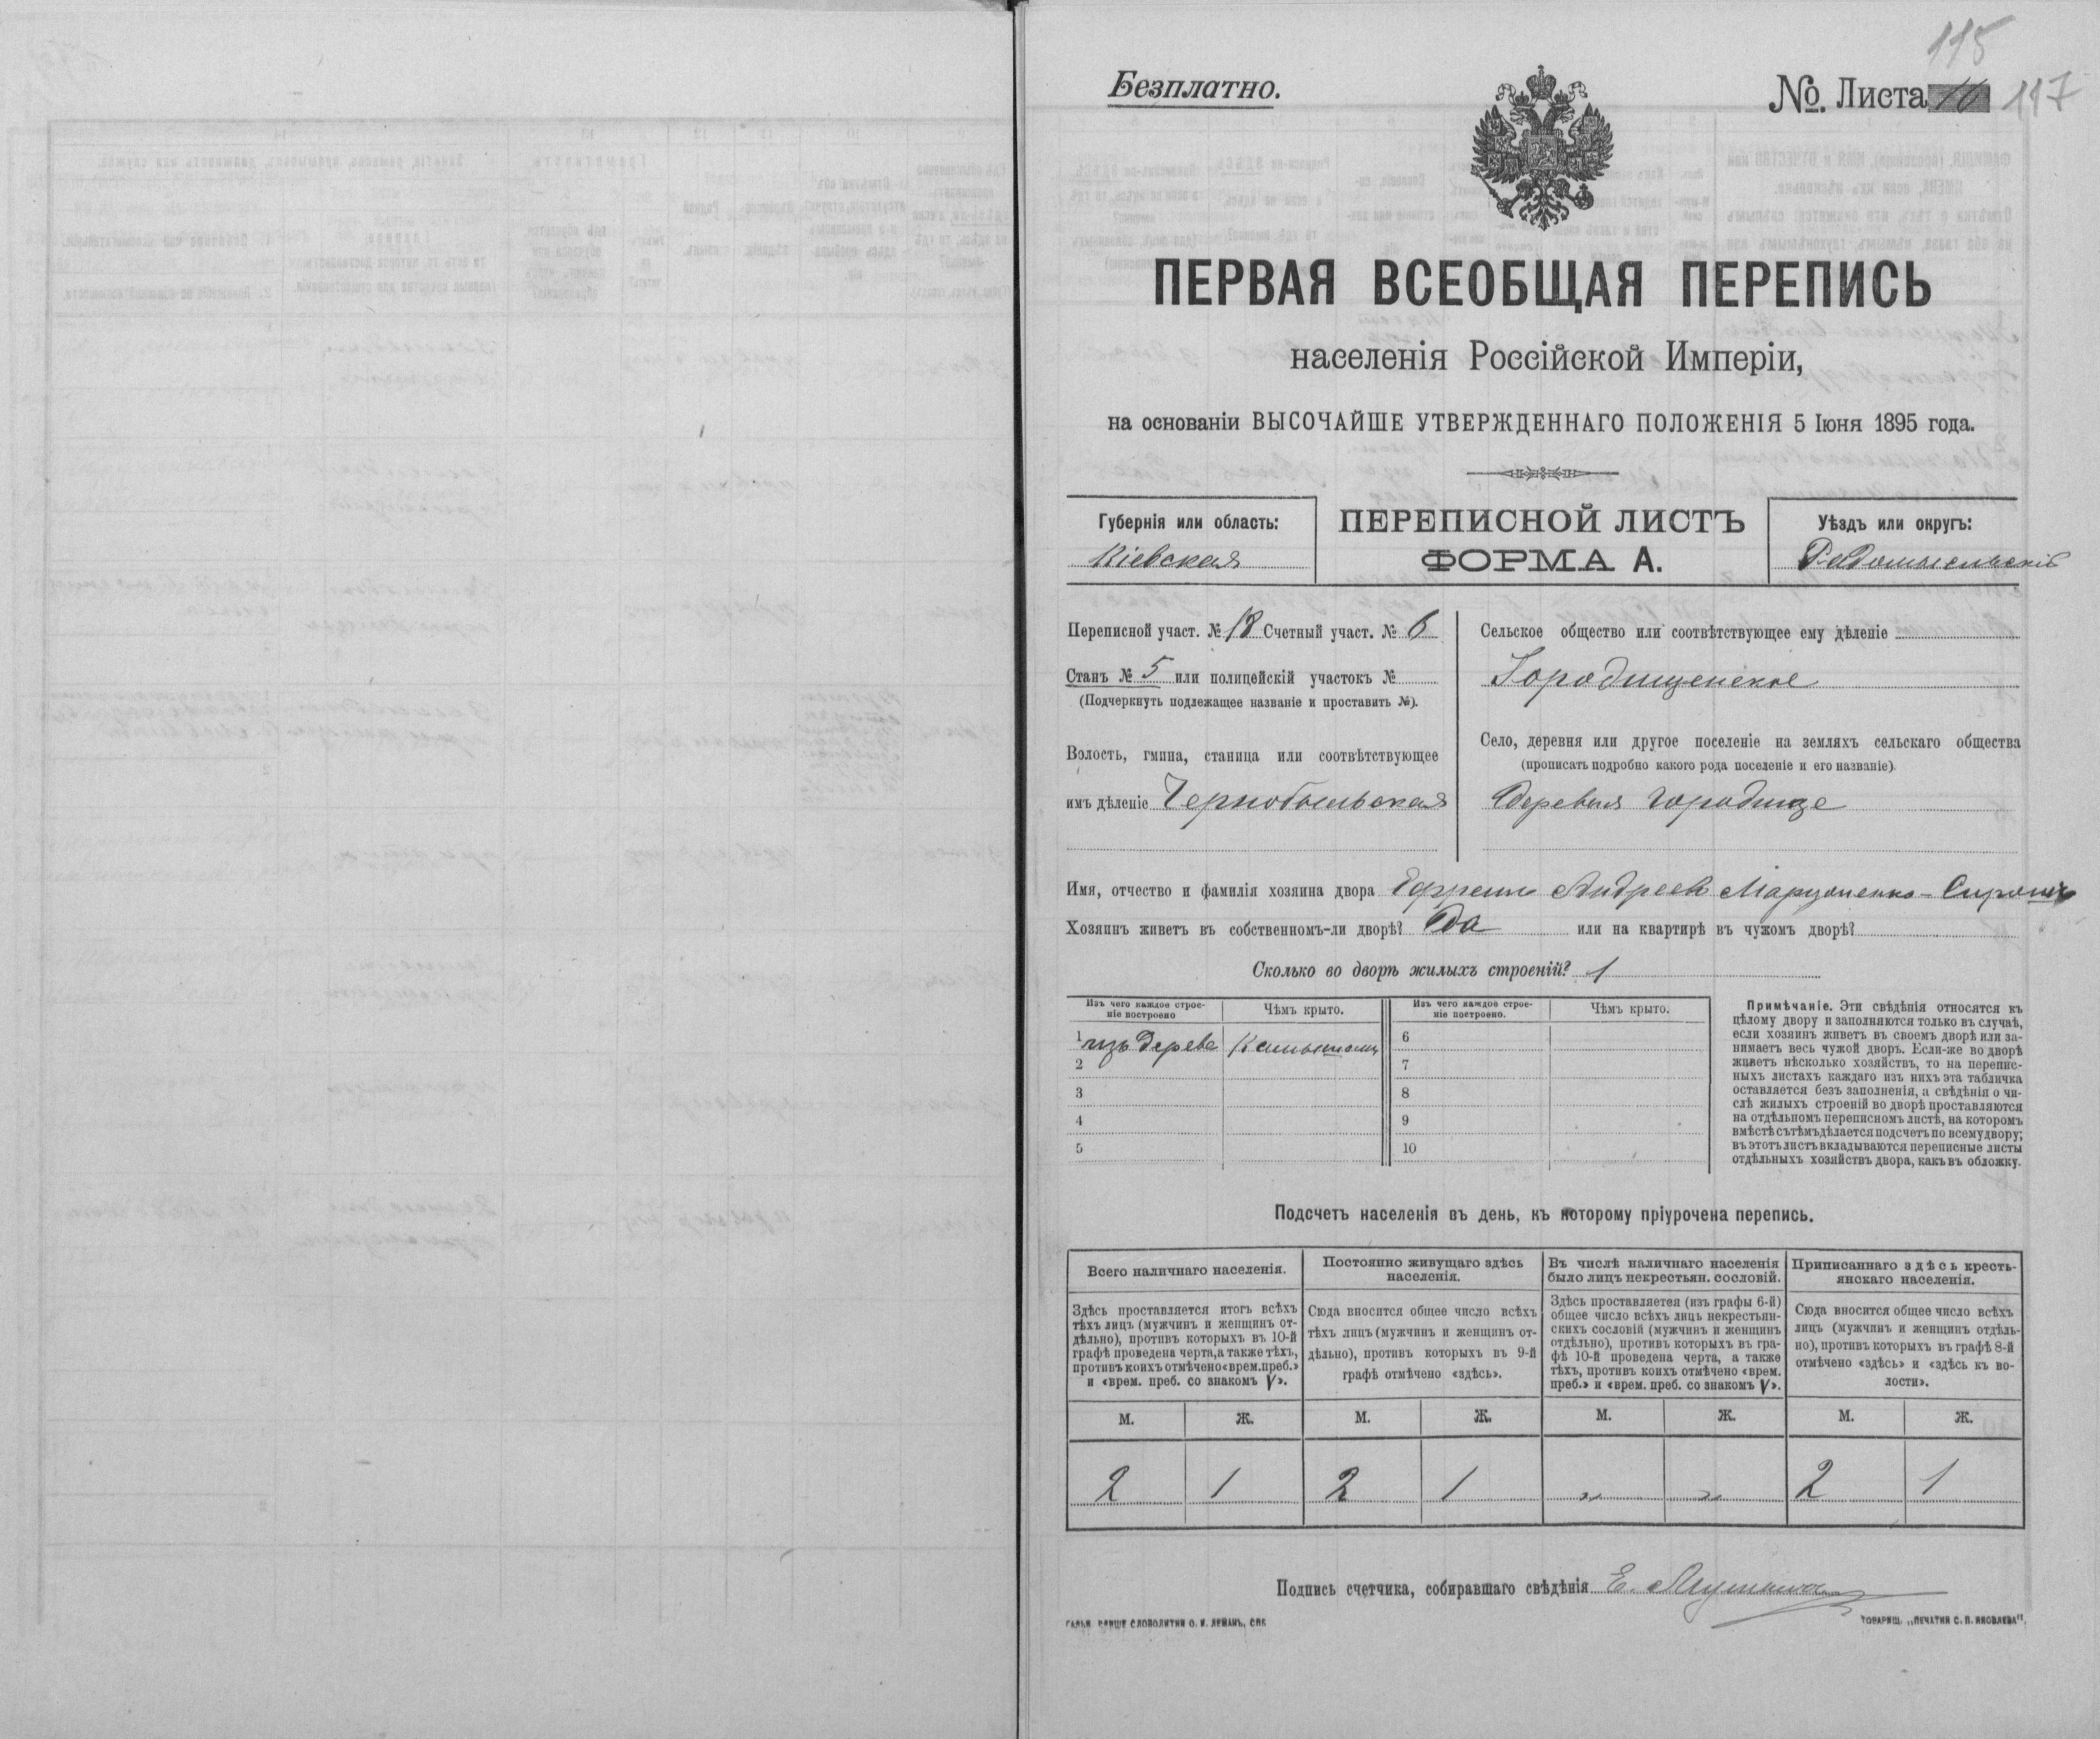 115
Безплатно.
№. Листа 117
ПЕРВАЯ ВСЕОБЩАЯ ПЕРЕПИСЬ
населенія Россійской Имперіи,
на основаніи ВЫСОЧАЙШЕ УТВЕРЖДЕННАГО ПОЛОЖЕНІЯ 5 Іюня 1895 года.
Губернія или область:
Кіевская
ПЕРЕПИСНОЙ ЛИСТЪ
ФОРМА А.
Уѣздъ или округъ:
Радомысльскій
Переписной участ. № 18 Счетный участ. № 6
Станъ № 5 или полицейскій участокъ №
(Подчеркнуть подлежащее названіе и проставить №).
Волость, гмина, станица или соотвѣтствующее
имъ дѣленіе Чернобыльская
Сельское общество или соотвѣтствующее ему дѣленіе
Городищенское
Село, деревня или другое поселеніе на земляхъ сельскаго общества
(прописать подробно какого рода поселеніе и его названіе).
деревня Городище
Имя, отчество и фамилія хозяина двора Ефремъ Андреевъ
Хозяинъ живетъ въ собственномъ-ли дворѣ? Да или на квартирѣ въ чужомъ дворѣ?
Сколько во дворѣ жилыхъ строеній? 1
Изъ чего каждое строе-
ніе построено
Чѣмъ крыто.
Изъ чего каждое строе-
ніе построено.
Чѣмъ крыто.
1 изъ дерева 6
2 7
3 8
4 9
5 10
Примѣчаніе. Эти свѣдѣнія относятся къ
цѣлому двору и заполняются только въ случаѣ,
если хозяинъ живетъ въ своемъ дворѣ или за-
нимаетъ весь чужой дворъ. Если-же во дворѣ
живетъ нѣсколько хозяйствъ, то на перепис-
ныхъ листахъ каждаго изъ нихъ эта табличка
оставляется безъ заполненія, а свѣдѣнія о чи-
слѣ жилыхъ строеній во дворѣ проставляются
на отдѣльномъ переписномъ листѣ, на которомъ
вмѣстѣ съ тѣмъ дѣлается подсчетъ по всему двору;
въ этотъ листъ вкладываются переписные листы
отдѣльныхъ хозяйствъ двора, какъ въ обложку.
Подсчетъ населенія въ день, къ которому пріурочена перепись.
Всего наличнаго населенія.
Здѣсь проставляется итогъ всѣхъ
тѣхъ лицъ (мужчинъ и женщинъ от-
дѣльно), противъ которыхъ въ 10-й
графѣ проведена черта, а также тѣхъ,
противъ коихъ отмѣчено «врем. преб.»
и «врем. преб. со знакомъ V».
Постоянно живущаго здѣсь
населенія.
Сюда вносится общее число всѣхъ
тѣхъ лицъ (мужчинъ и женщинъ от-
дѣльно), противъ которыхъ въ 9-й
графѣ отмѣчено «здѣсь».
Въ числѣ наличнаго населенія
было лицъ некрестьян. сословій.
Здѣсь проставляется (изъ графы 6-й)
общее число всѣхъ лицъ некрестьян-
скихъ сословій (мужчинъ и женщинъ
отдѣльно), противъ которыхъ въ гра-
фѣ 10-й проведена черта, а также
тѣхъ, противъ коихъ отмѣчено «врем.
преб.» и «врем. преб. со знакомъ V».
Приписаннаго здѣсь кресть-
янскаго населенія.
Сюда вносится общее число всѣхъ
лицъ (мужчинъ и женщинъ отдѣль-
но), противъ которыхъ въ графѣ 8-й
отмѣчено «здѣсь» и «здѣсь въ во-
лости».
М. Ж. М. Ж. М. Ж. М. Ж.
2 1 2 1 „ „ 2 1
Подпись счетчика, собиравшаго свѣдѣнія Е.
СЛОВОЛИТНИ О. И. ЛЕМАНЪ, СПБ.
ТОВАРИЩ. „ПЕЧАТНЯ С. П. ЯКОВЛЕВА".